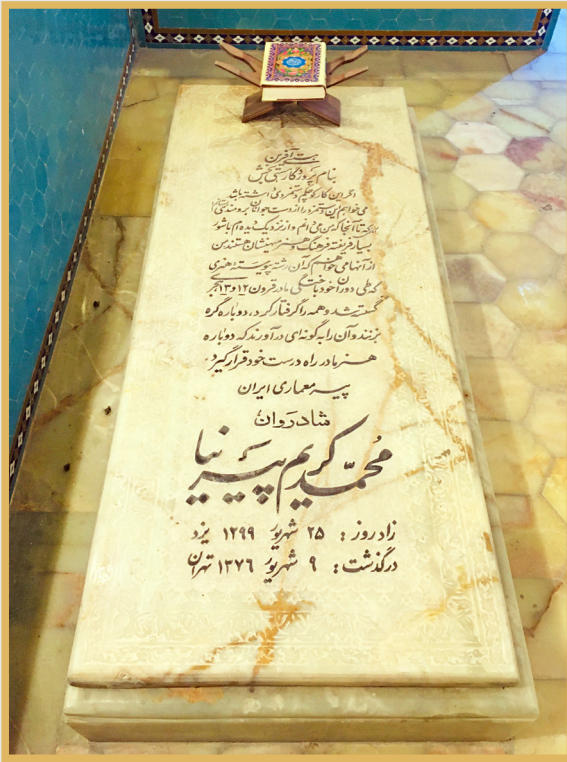 بنام پروردگار هستی بخش
اگر این کار کوچکم دستمزدی داشته باشد
می خواهم این دستمزد را از دست جوانان برومندی
که تا آنجا که من می دانم و از نزدیک دیده ام با شور
بسیار فریفته فرهنگ و هنر میهنشان هستند من
از آنها می خواهم که آن رشته پیوسته هنری
که طی دوران خودباختگی ما در قرون ۱۲ و ۱۳ هجر
گسترش شد و همه را گرفتار کرد، دوباره گره
بزنند و آن را به گونه ای در آورند که دوباره
هنر ما در راه درست خود قرار گیرد.
پیر معماری ایران
شادروان
محمد کریم پیرنیا
زادروز: ۲۵ شهریور ۱۲۹۹ یزد
درگذشت: ۹ شهریور ۱۳۷۶ تهران